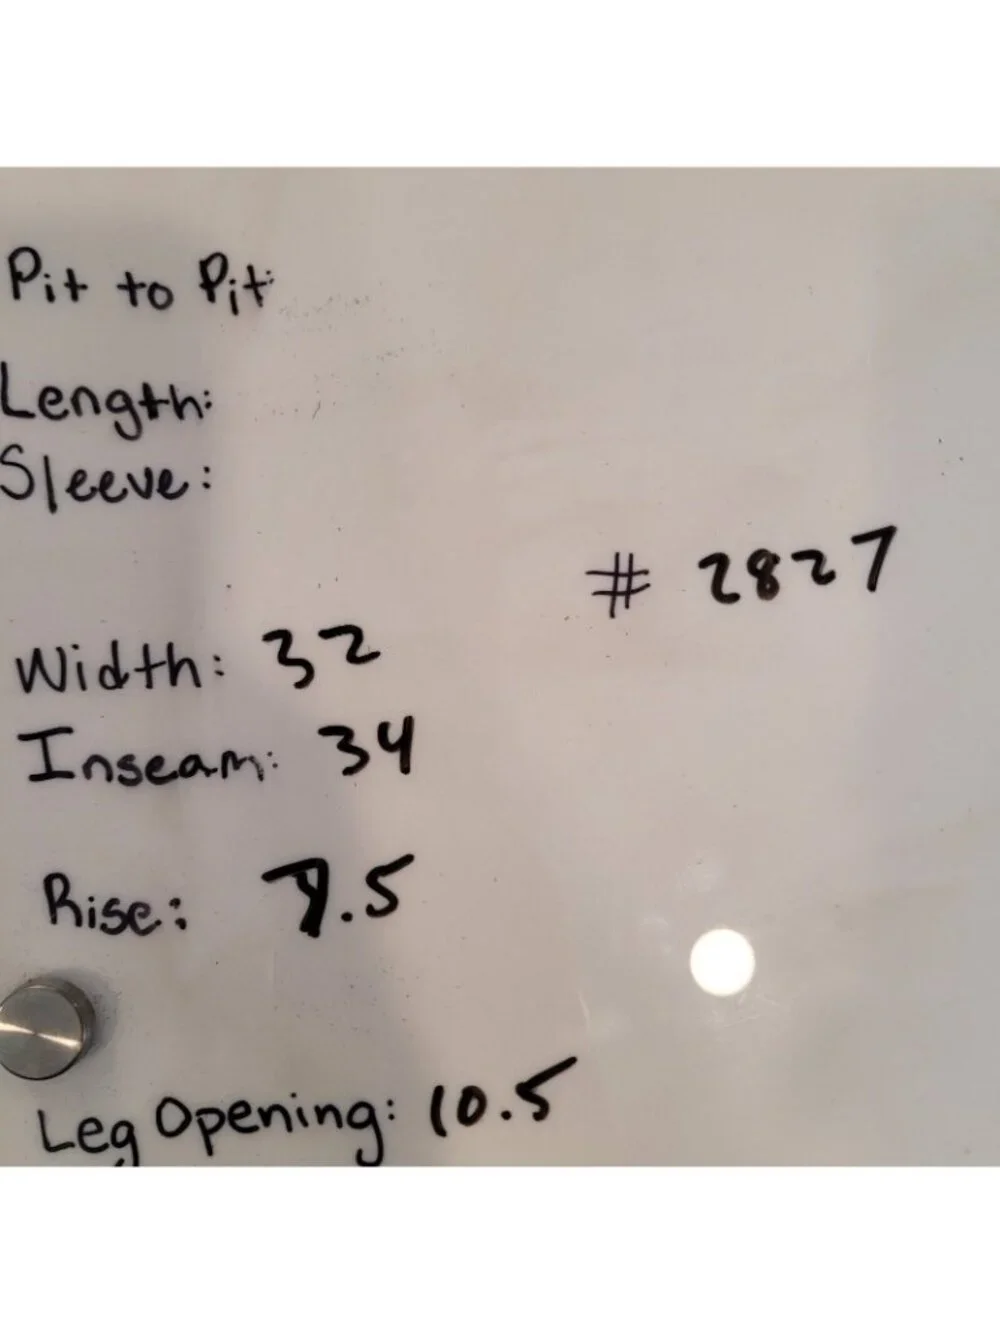 Pit to Pit:
Length:
Sleeve:
# 2827
Width: 32
Inseam: 34
Rise: 7.5
Leg Opening: 10.5